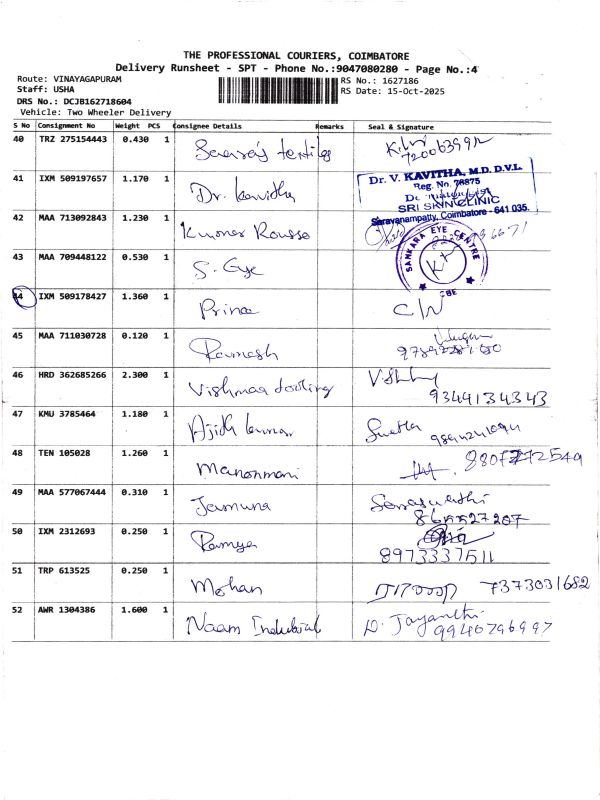 THE PROFESSIONAL COURIERS, COIMBATORE
Delivery Runsheet - SPT - Phone No.:9047080280 - Page No.:4
Route: VINAYAGAPURAM
RS No.: 1627186
Staff: USHA
RS Date: 15-Oct-2025
DRS No.: DCJB162718604
Vehicle: Two Wheeler Delivery
S No Consignment No Weight PCS Consignee Details Remarks Seal & Signature
40 TRZ 275154443 0.430 1
7200639912
41 IXM 509197657 1.170 1 Dr. Kavitha
Dr. V. KAVITHA, M.D. D.V.L.
Reg. No. 78875
SRI SKIN CLINIC
Saravanampatty, Coimbatore - 641 035.
42 MAA 713092843 1.230 1 Kumar
43 MAA 709448122 0.530 1 S. Eye
SANKARA EYE CENTRE
CBE
44 IXM 509178427 1.360 1 Prince C/N
45 MAA 711030728 0.120 1 Ramesh
46 HRD 362685266 2.300 1 Vishmaa tooling
9344134343
47 KMU 3785464 1.180 1 Ajith kumar Swetha
48 TEN 105028 1.260 1 Manonmani 8807272549
49 MAA 577067444 0.310 1 Jamuna Saraswathi
50 IXM 2312693 0.250 1 Ramya
8973337511
51 TRP 613525 0.250 1 Mohan 7373031682
52 AWR 1304386 1.600 1 Naam Industrial D. Jayanthi
9940796997